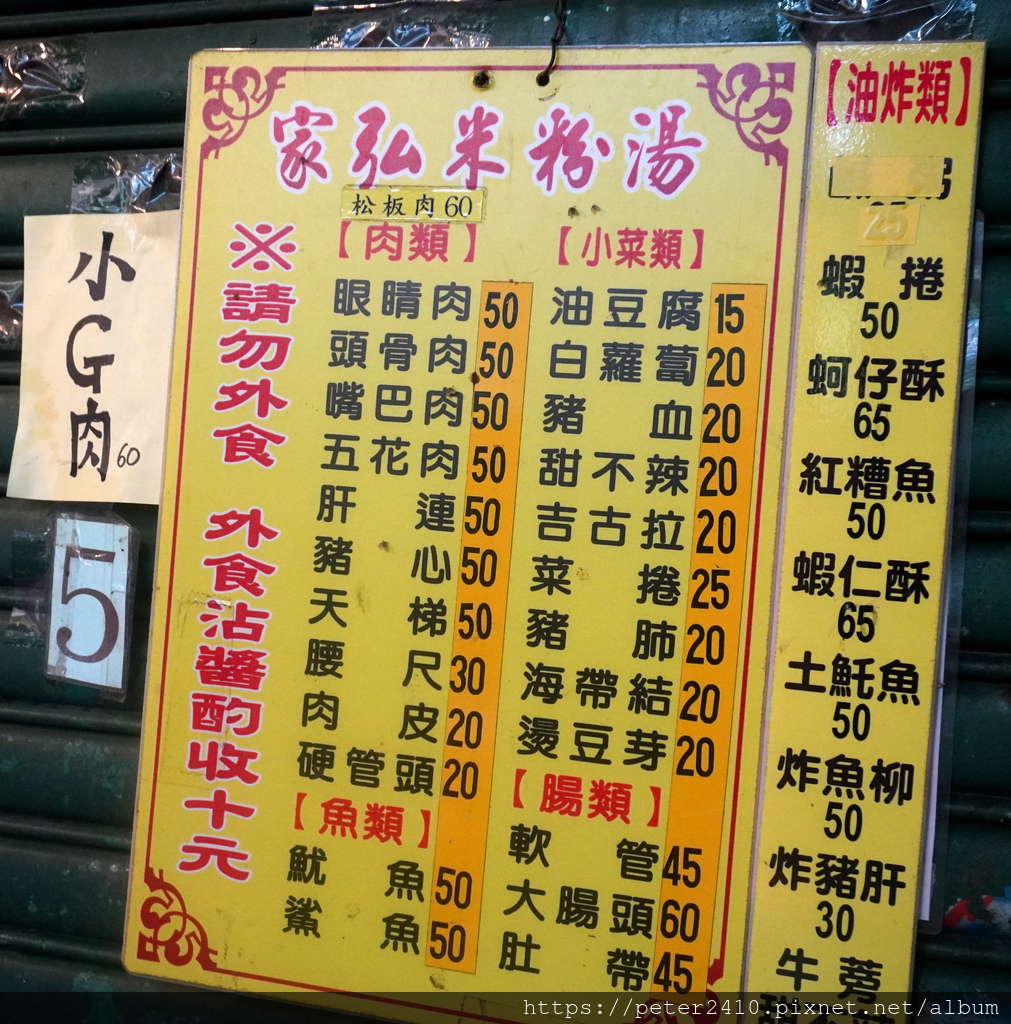 家弘米粉湯
松板肉 60
※請勿外食 外食沾醬酌收十元
【肉類】
眼睛肉 50
頭骨肉 50
嘴巴肉 50
五花肉 50
肝連 50
豬心 50
天梯 50
腰尺 30
肉皮 20
硬管頭 20
【魚類】
魷魚 50
鯊魚 50
【小菜類】
油豆腐 15
白蘿蔔 20
豬血 20
甜不辣 20
吉古拉 20
菜捲 25
豬肺 20
海帶結 20
燙豆芽 20
【腸類】
軟管 45
大腸頭 60
肚帶 45
【油炸類】
25
蝦捲
50
蚵仔酥
65
紅糟魚
50
蝦仁酥
65
土魠魚
50
炸魚柳
50
炸豬肝
30
牛蒡
小G肉 60
5
https://peter2410.pixnet.net/album